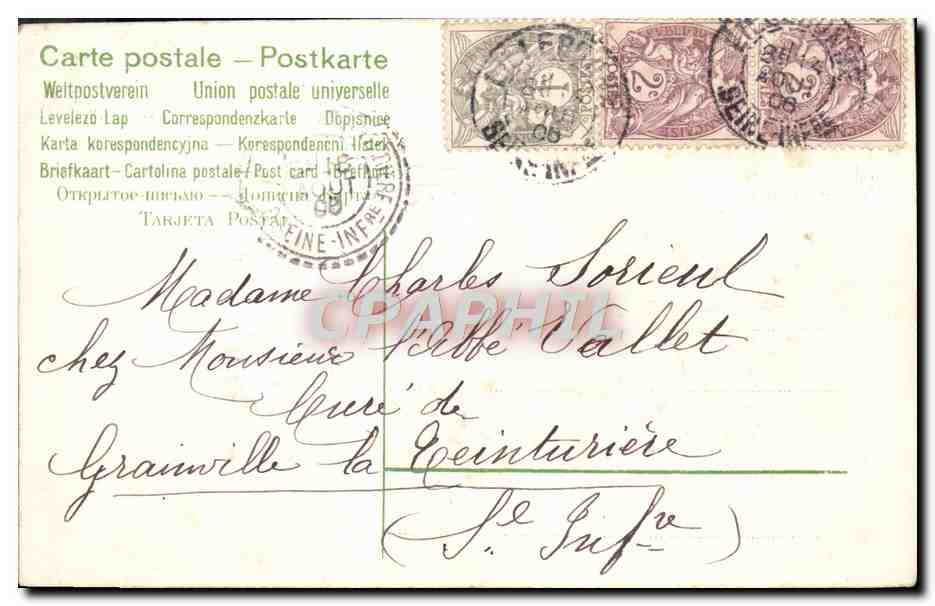 Carte postale – Postkarte
Weltpostverein Union postale universelle
Levelező Lap – Correspondenzkarte Dopisnice
Karta korespondencyjna – Korespondenční lístek
Briefkaart – Cartolina postale / Post card – Brefkort
Открытое письмо —
TARJETA POSTAL
AOUT
SEINE-INFRE
06
SEINE-INFRE
06
SEINE-INFRE
1
2
Madame Charles Sorieul
chez Monsieur l'Abbé Vallet
Curé de
Grainville la Teinturière
(Se Infre)
CPAPHIL